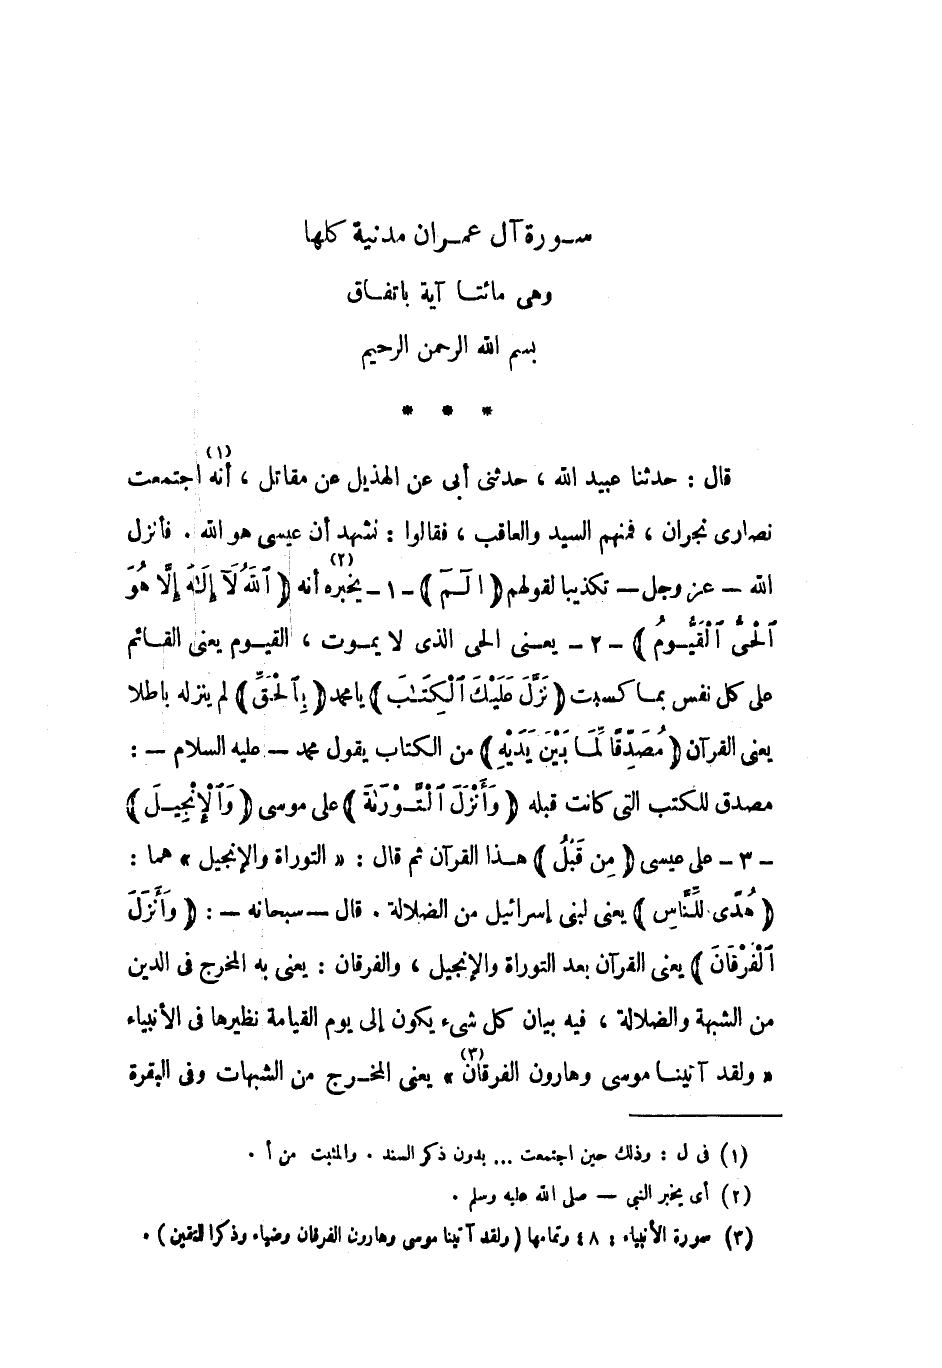 سورة آل عمران مدنية كلها
وهى مائتا آية باتفاق
بسم الله الرحمن الرحيم
* * *
قال : حدثنا عبيد الله ، حدثنى أبى عن الهذيل عن مقاتل ، أنه (١) اجتمعت
نصارى نجران ، فمنهم السيد والعاقب ، فقالوا : نشهد أن عيسى هو الله . فأنزل
الله — عز وجل — تكذيبا لقولهم ﴿ الٓـمٓ ﴾ -١- يخبره (٢) أنه ﴿ ٱللَّهُ لَآ إِلَـٰهَ إِلَّا هُوَ
ٱلْحَىُّ ٱلْقَيُّومُ ﴾ -٢- يعنى الحى الذى لا يموت ، القيوم يعنى القائم
على كل نفس بما كسبت ﴿ نَزَّلَ عَلَيْكَ ٱلْكِتَـٰبَ ﴾ يا محمد ﴿ بِٱلْحَقِّ ﴾ لم ينزله باطلا
يعنى القرآن ﴿ مُصَدِّقًا لِّمَا بَيْنَ يَدَيْهِ ﴾ من الكتاب يقول محمد — عليه السلام — :
مصدق للكتب التى كانت قبله ﴿ وَأَنْزَلَ ٱلتَّوْرَىٰةَ ﴾ على موسى ﴿ وَٱلْإِنْجِيلَ ﴾
-٣- على عيسى ﴿ مِن قَبْلُ ﴾ هذا القرآن ثم قال : « التوراة والإنجيل » هما :
﴿ هُدًى لِّلنَّاسِ ﴾ يعنى لبنى إسرائيل من الضلالة . قال — سبحانه — : ﴿ وَأَنْزَلَ
ٱلْفُرْقَانَ ﴾ يعنى القرآن بعد التوراة والإنجيل ، والفرقان : يعنى به المخرج فى الدين
من الشبهة والضلالة ، فيه بيان كل شىء يكون إلى يوم القيامة نظيرها فى الأنبياء
« ولقد آتينا موسى وهارون الفرقان (٣) » يعنى المخرج من الشبهات وفى البقرة
(١) فى ل : وذلك حين اجتمعت ... بدون ذكر السند . والمثبت من أ .
(٢) أى يخبر النبي — صلى الله عليه وسلم .
(٣) سورة الأنبياء : ٤٨ وتمامها ( ولقد آتينا موسى وهارون الفرقان وضياء وذكرا للمتقين ) .